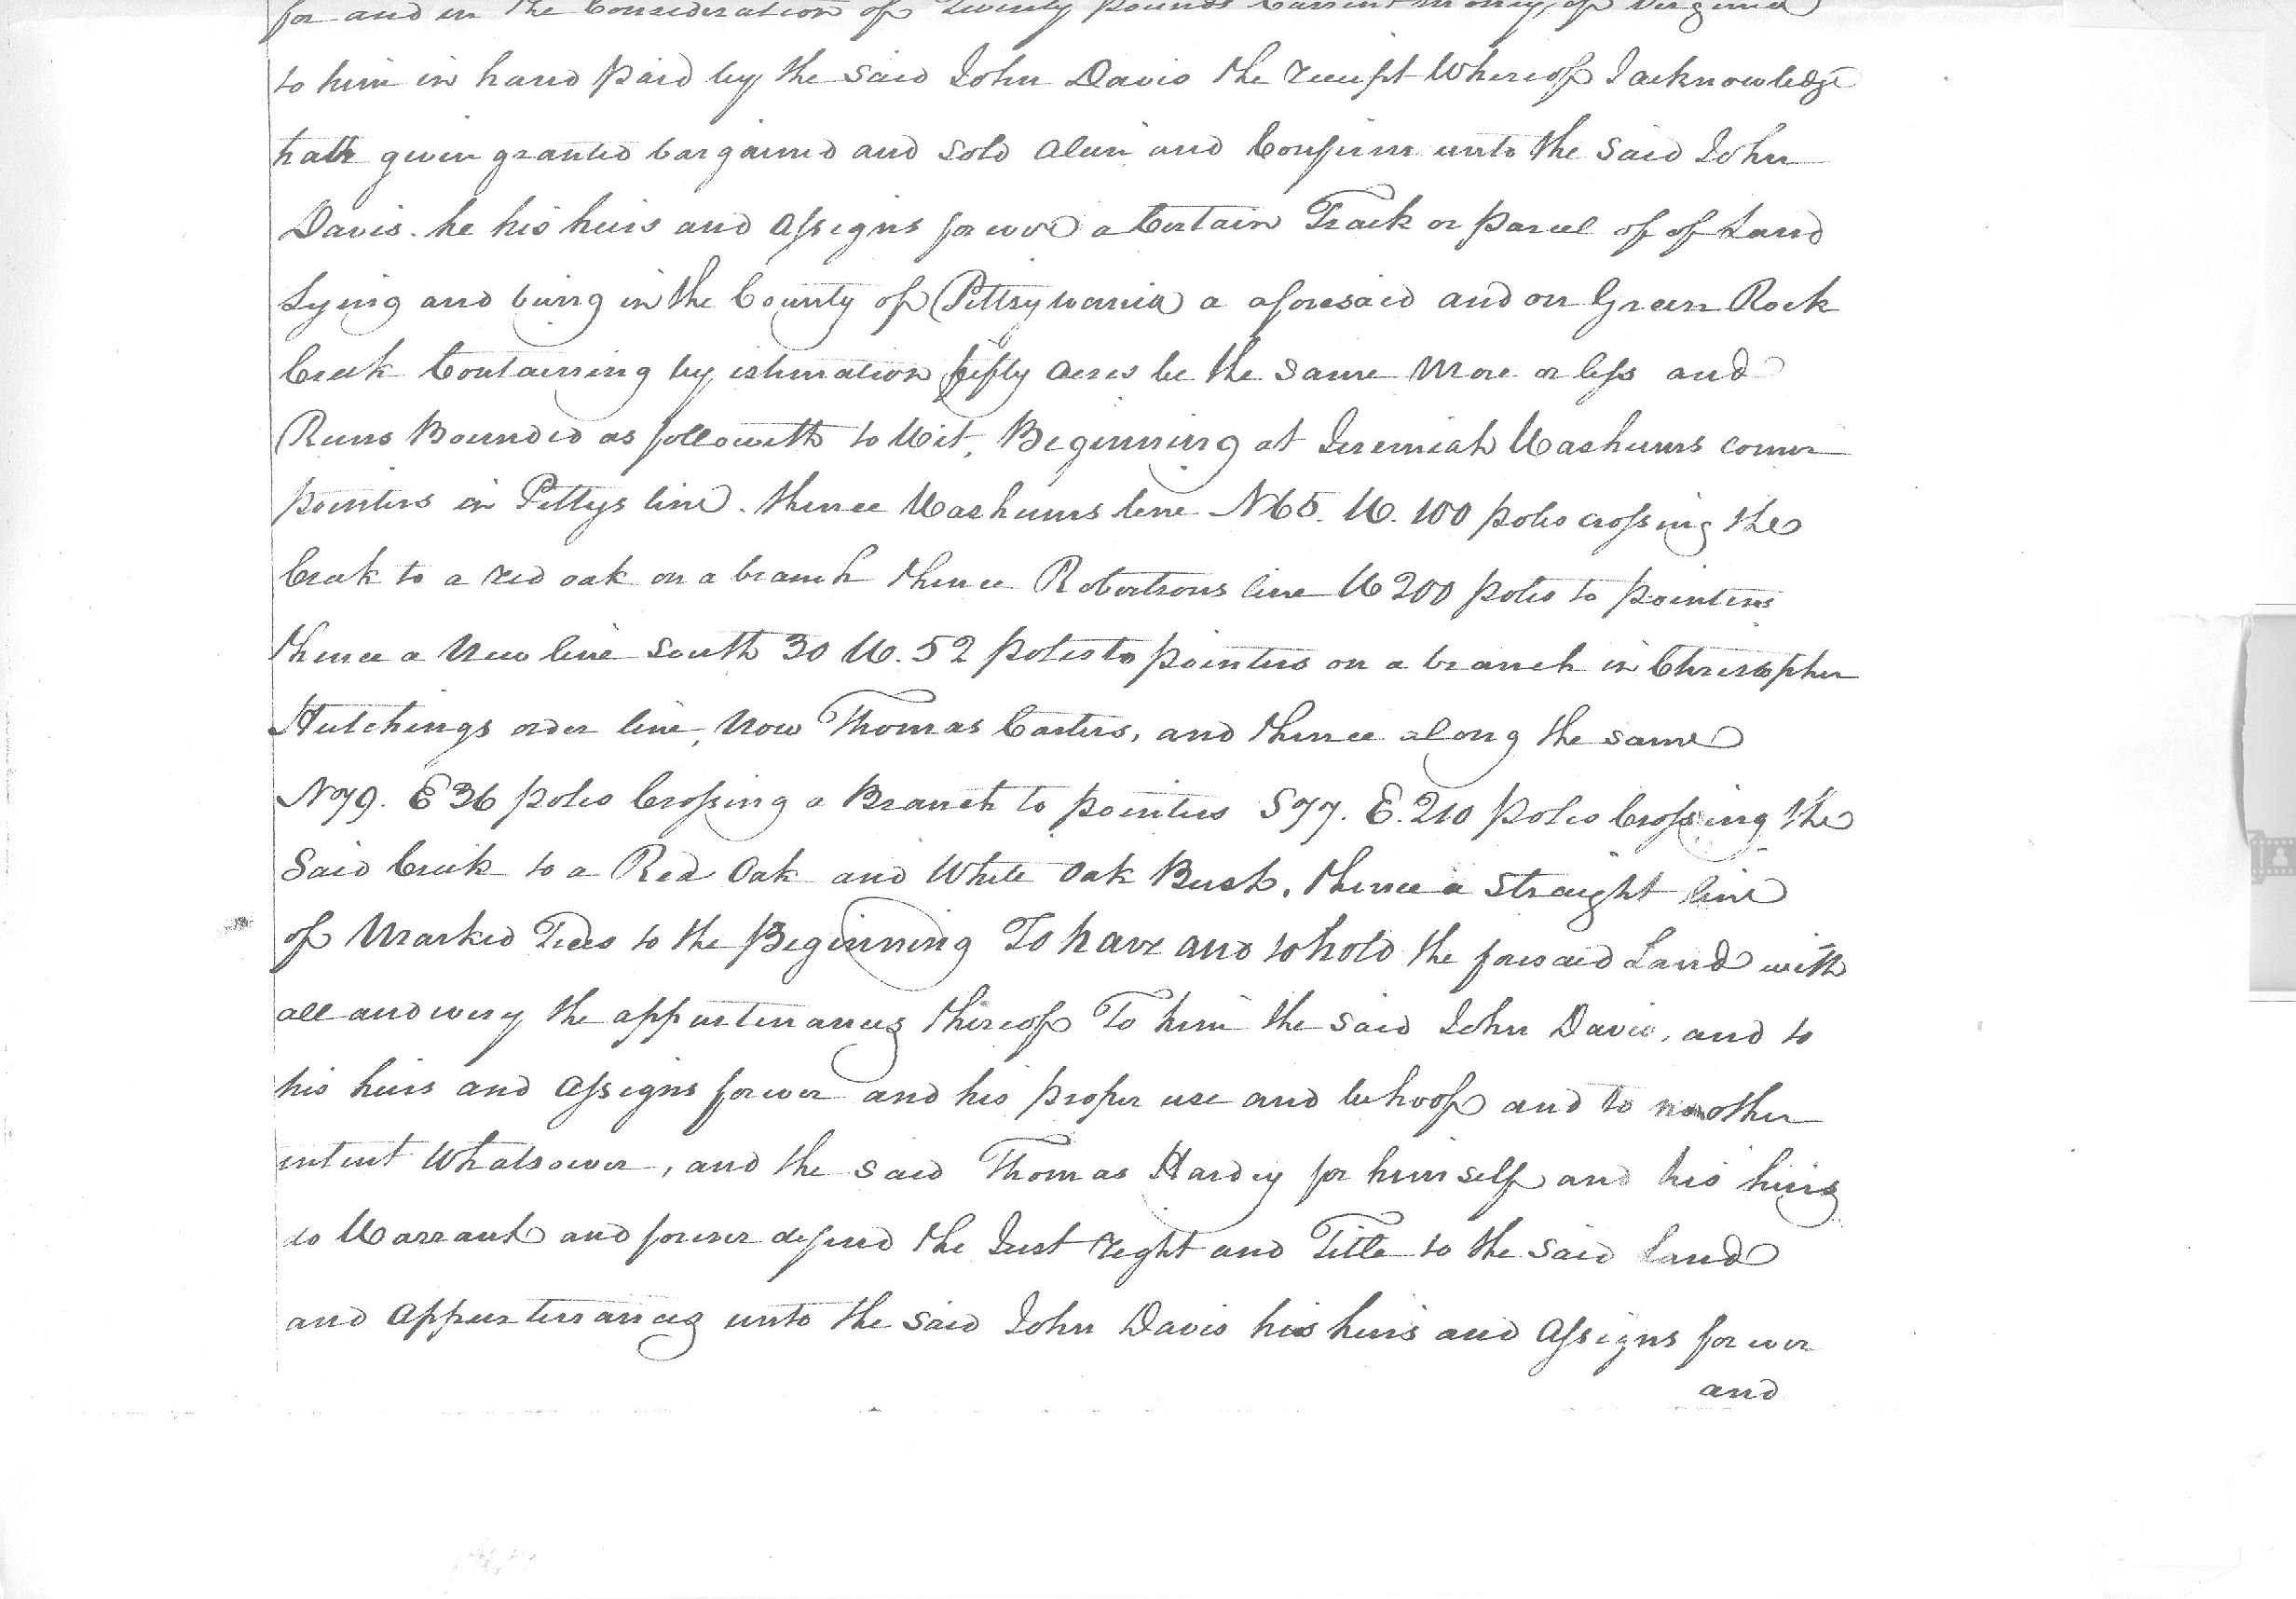 for and in the Consideration of Twenty pounds Current money of Virginia
to him in hand paid by the said John Davis the receipt Whereof I acknowledge
hath given granted bargained and sold alien and Confirm unto the said John
Davis. he his heirs and assigns forever a Certain Track or parcel of of Land
Lying and being in the County of Pittsylvania a aforesaid and on Green Rock
Creek Containing by estimation fifty acres be the same more or less and
Runs Bounded as followeth to Wit, Beginning at Jeremiah Washums corner
pointers in Pettys line. thence Washums line N65. W. 100 poles crossing the
Creek to a red oak on a branch thence Robertsons line W 200 poles to pointers
thence a New line south 30 W. 52 poles to pointers on a branch in Christopher
Hutchings order line, Now Thomas Carters, and thence along the same
N79. E 36 poles Crossing a Branch to pointers S77. E. 210 poles Crossing the
Said Creek to a Red Oak and White Oak Bush, thence a straight line
of Marked Trees to the Beginning To have and to hold the foresaid Land with
all and every the appurtenances thereof To him the said John Davis, and to
his heirs and assigns forever and his proper use and behoof and to no other
intent Whatsoever, and the said Thomas Hardy for himself and his heirs
do Warrant and forever defend the Just right and Title to the said Land
and appurtenances unto the said John Davis his heirs and assigns forever
and